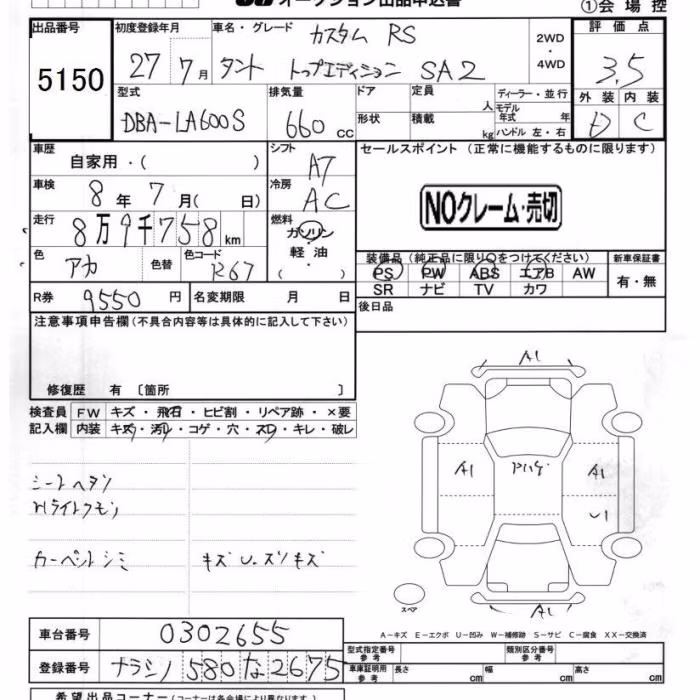 オークション出品申込書
①会場控
出品番号
5150
初度登録年月
27 7月
車名・グレード カスタム RS
タント トップエディション SA2
2WD
・
4WD
評価点
3.5
外装 内装
D C
型式
DBA-LA600S
排気量
660 cc
ドア
定員 人
ディーラー・並行
モデル年式 年
形状
積載 kg
ハンドル 左・右
車歴
自家用・( )
シフト
AT
車検
8年7月( 日)
冷房
AC
走行
8万9千758km
燃料
ガソリン
軽油
( ・ )
色
アカ
色替
色コード
R67
R券 9550円
名変期限 月 日
セールスポイント(正常に機能するものに限ります)
NOクレーム・売切
装備品(純正品に限り○をつけてください)
新車保証書
PS PW ABS エアB AW
SR ナビ TV カワ
有・無
後日品
注意事項申告欄(不具合内容等は具体的に記入して下さい)
修復歴 有〔箇所 〕
検査員 FW キズ・飛石・ヒビ割・リペア跡・×要
記入欄 内装 キズ・汚レ・コゲ・穴・スレ・キレ・破レ
シートヘタリ
Hライトクモリ
カーペットシミ
キズ U・スリキズ
A1
A1
A1
U1
A1
スペア
A-キズ E-エクボ U-凹み W-補修跡 S-サビ C-腐食 XX-交換済
車台番号 0302655
登録番号 ナラシノ 580 な 2675
型式指定番号 参考
類別区分番号 参考
車庫証明用 参考
長さ cm
幅 cm
高さ cm
希望出品コーナー